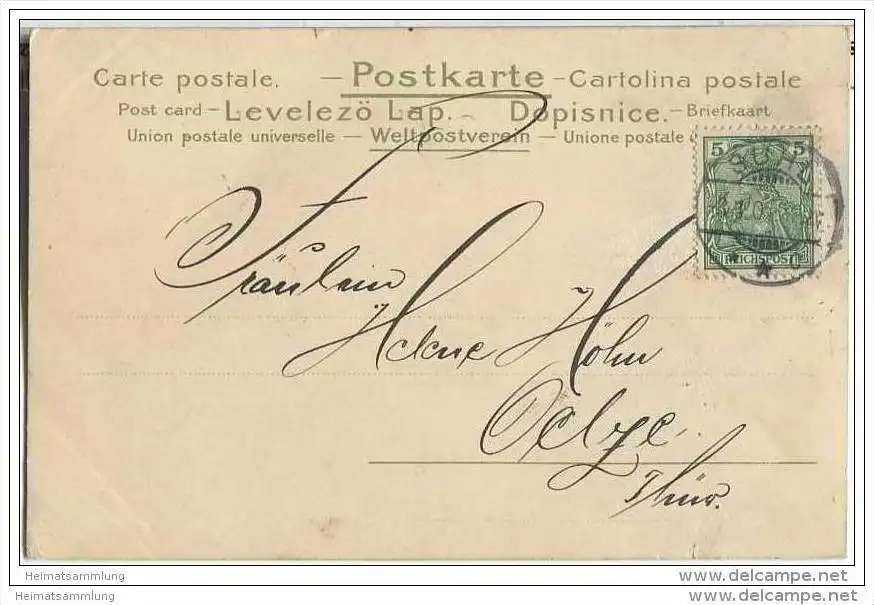 Carte postale. — Postkarte – Cartolina postale
Post card – Levelező Lap. – Dopisnice. – Briefkaart
Union postale universelle — Weltpostverein — Unione postale
5 5
REICHSPOST
Fräulein
Helene Höhn
Oelze
Thür.
Heimatsammlung www.delcampe.net
Heimatsammlung www.delcampe.net